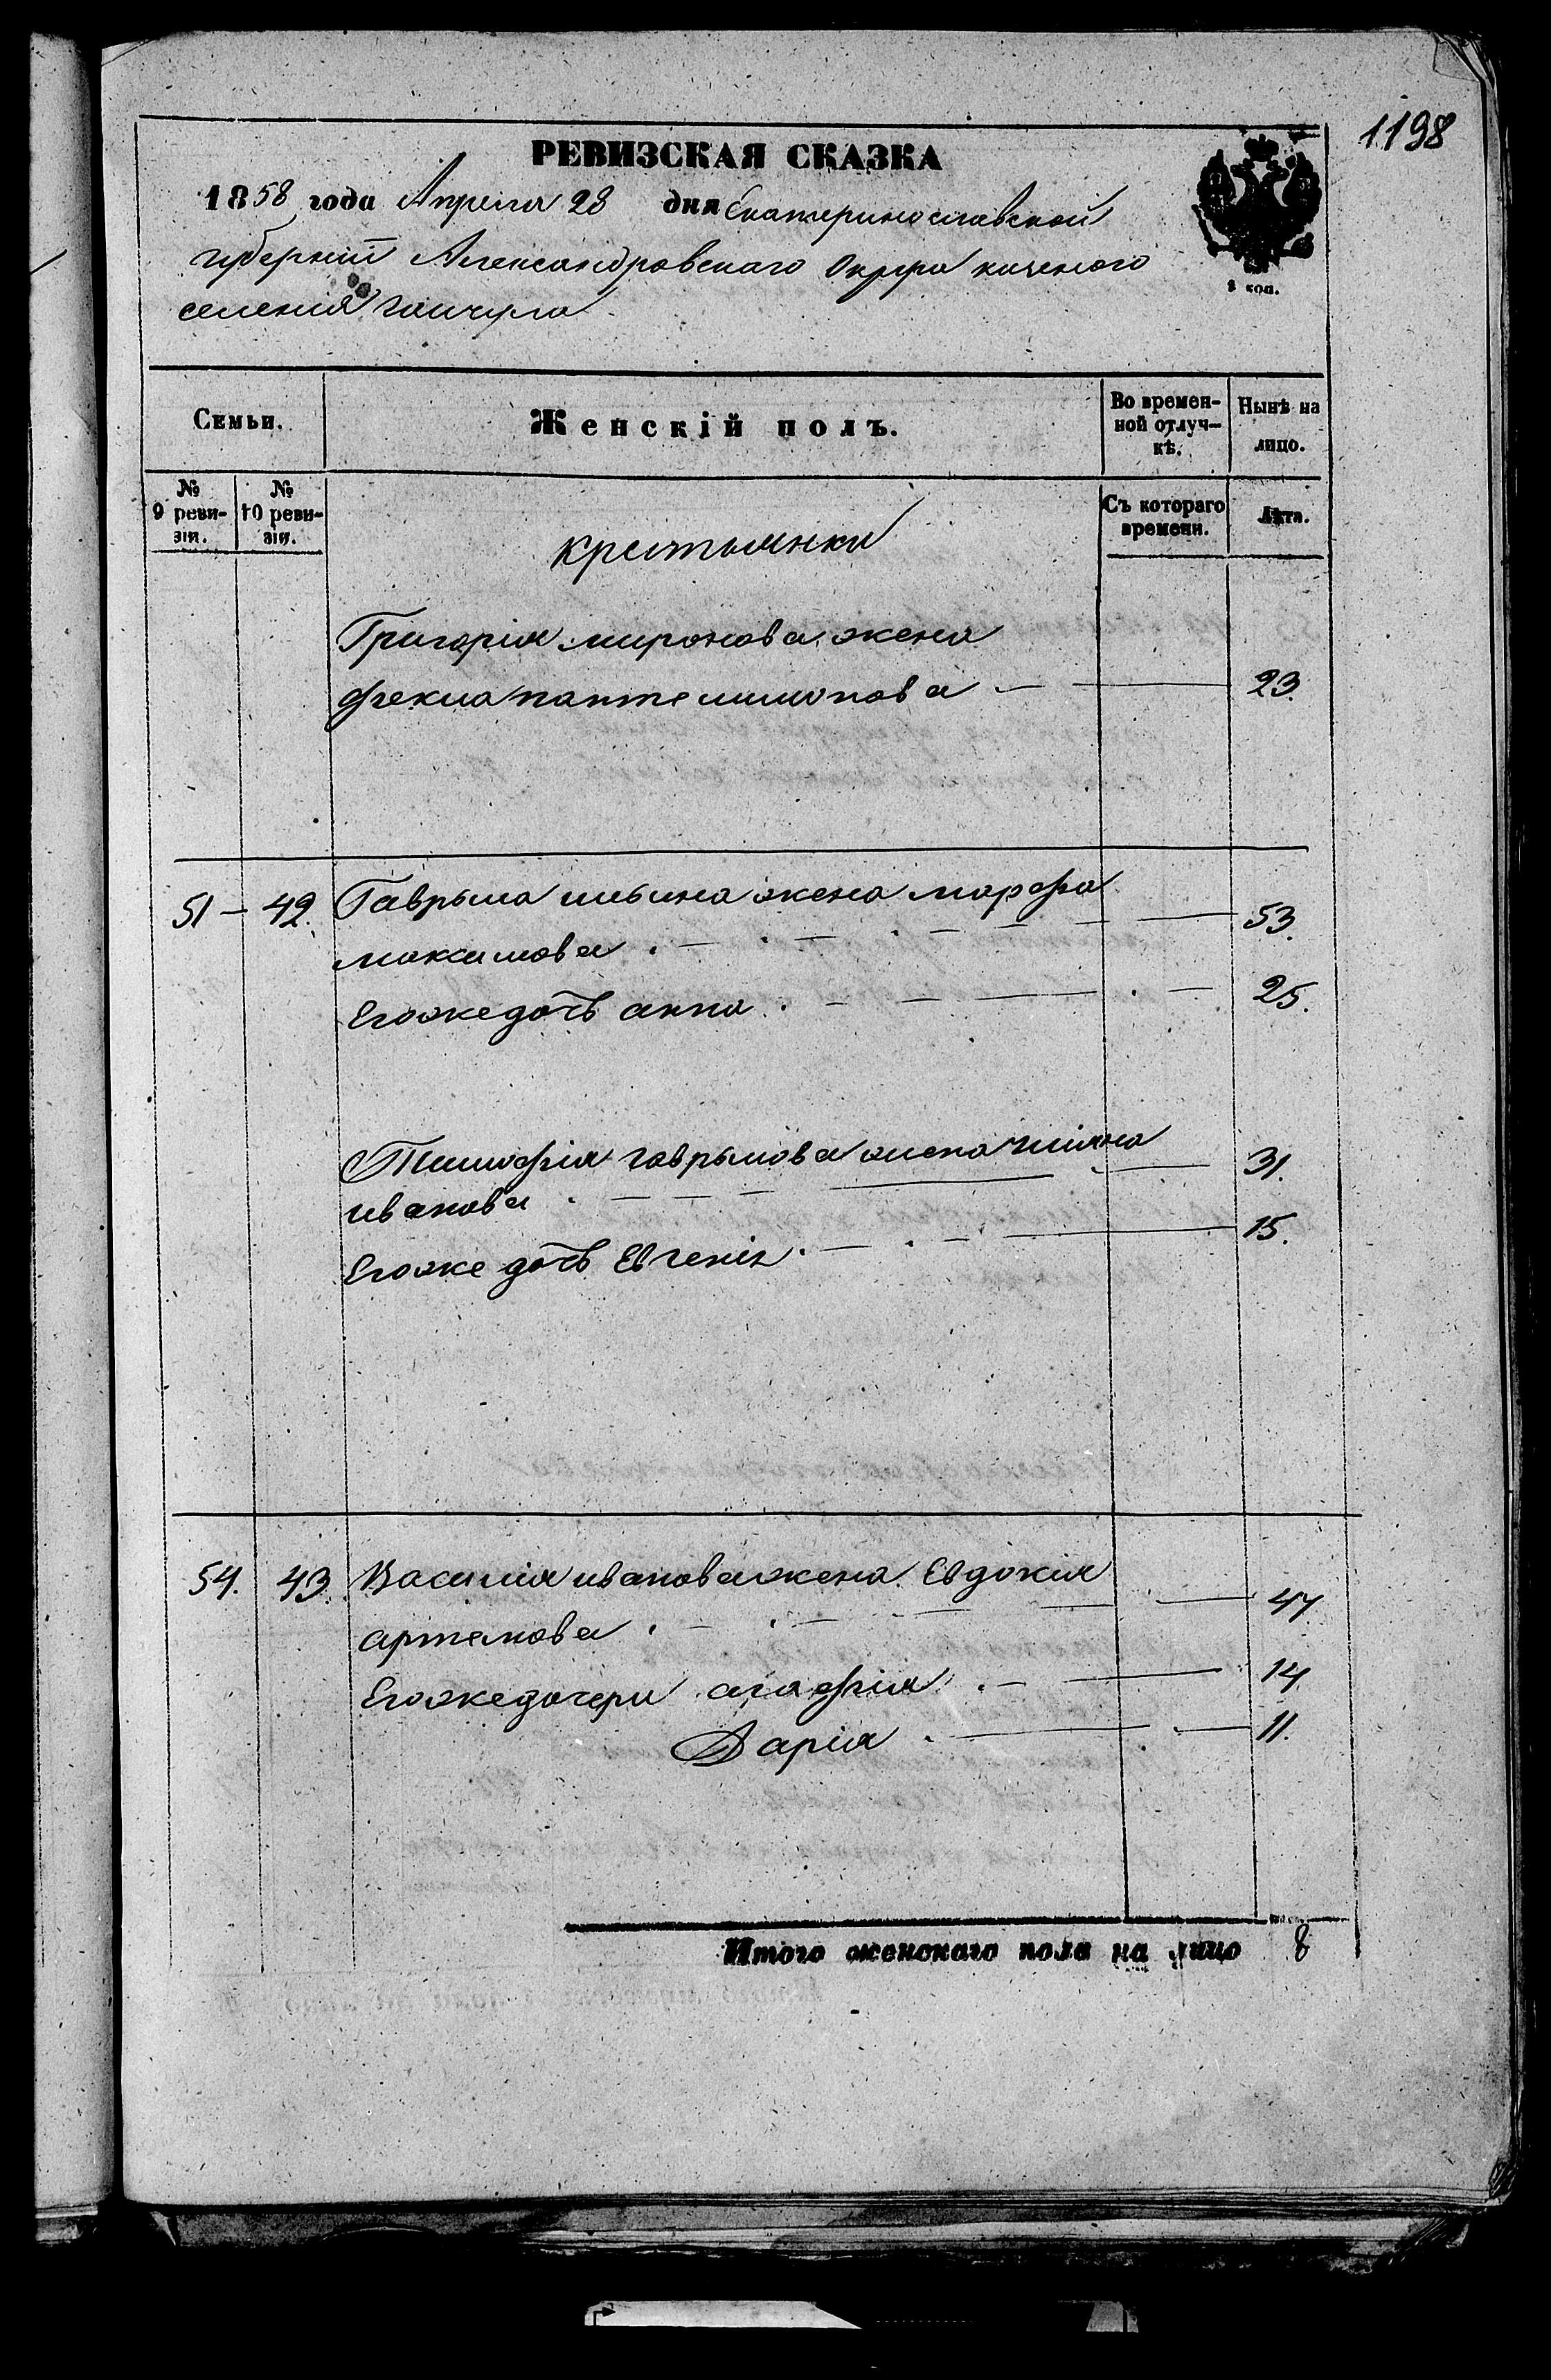 1198
РЕВИЗСКАЯ СКАЗКА
1858 года Апреля 28 дня Екатеринославской
губернiи Александровскаго Округа казеного
селенiя Гайчула
2 коп.
Семьи. Женскiй полъ. Во времен-ной отлуч-кѣ. Нынѣ на лицо.
№ 9 реви-зiи. № 10 реви-зiи. Съ котораго времени. Лѣта.
крестьянки
Григорiя миронова жена
фекла пантелимонова 23.
51 - 42. Гаврыла ильина жена марфа
максимова 53.
Егоже дочь анна 25.
Тимофiя гаврылова жена
иванова 31.
Егоже дочь Евгенiя 15.
54. 43. Василiя иванова жена Евдокiя
артемова 47
Егоже дочери агафiя 14.
Дарiя 11.
Итого женскаго пола на лицо 8